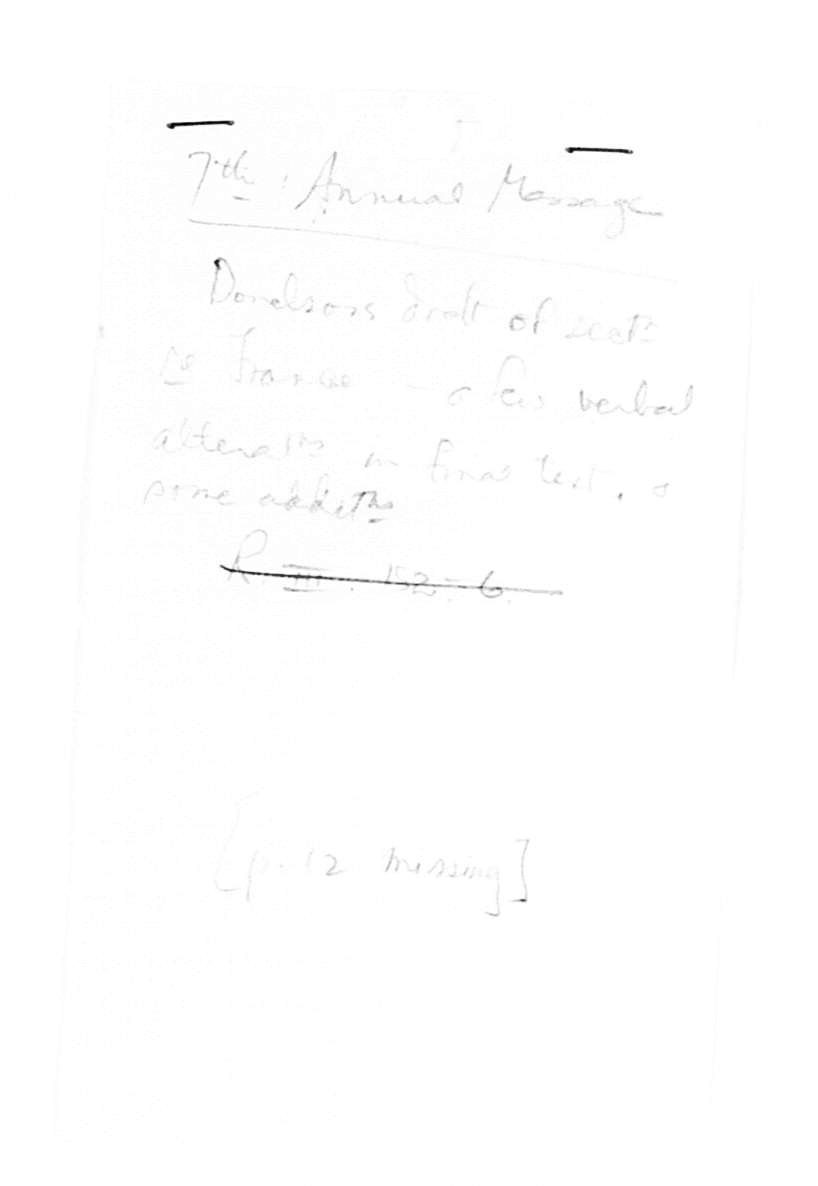 7th Annual Message
Donelsons draft of sectn
re France - a few verbal
alteratns in final text, &
some addtns
R III. 152-6.
[p. 12 missing]